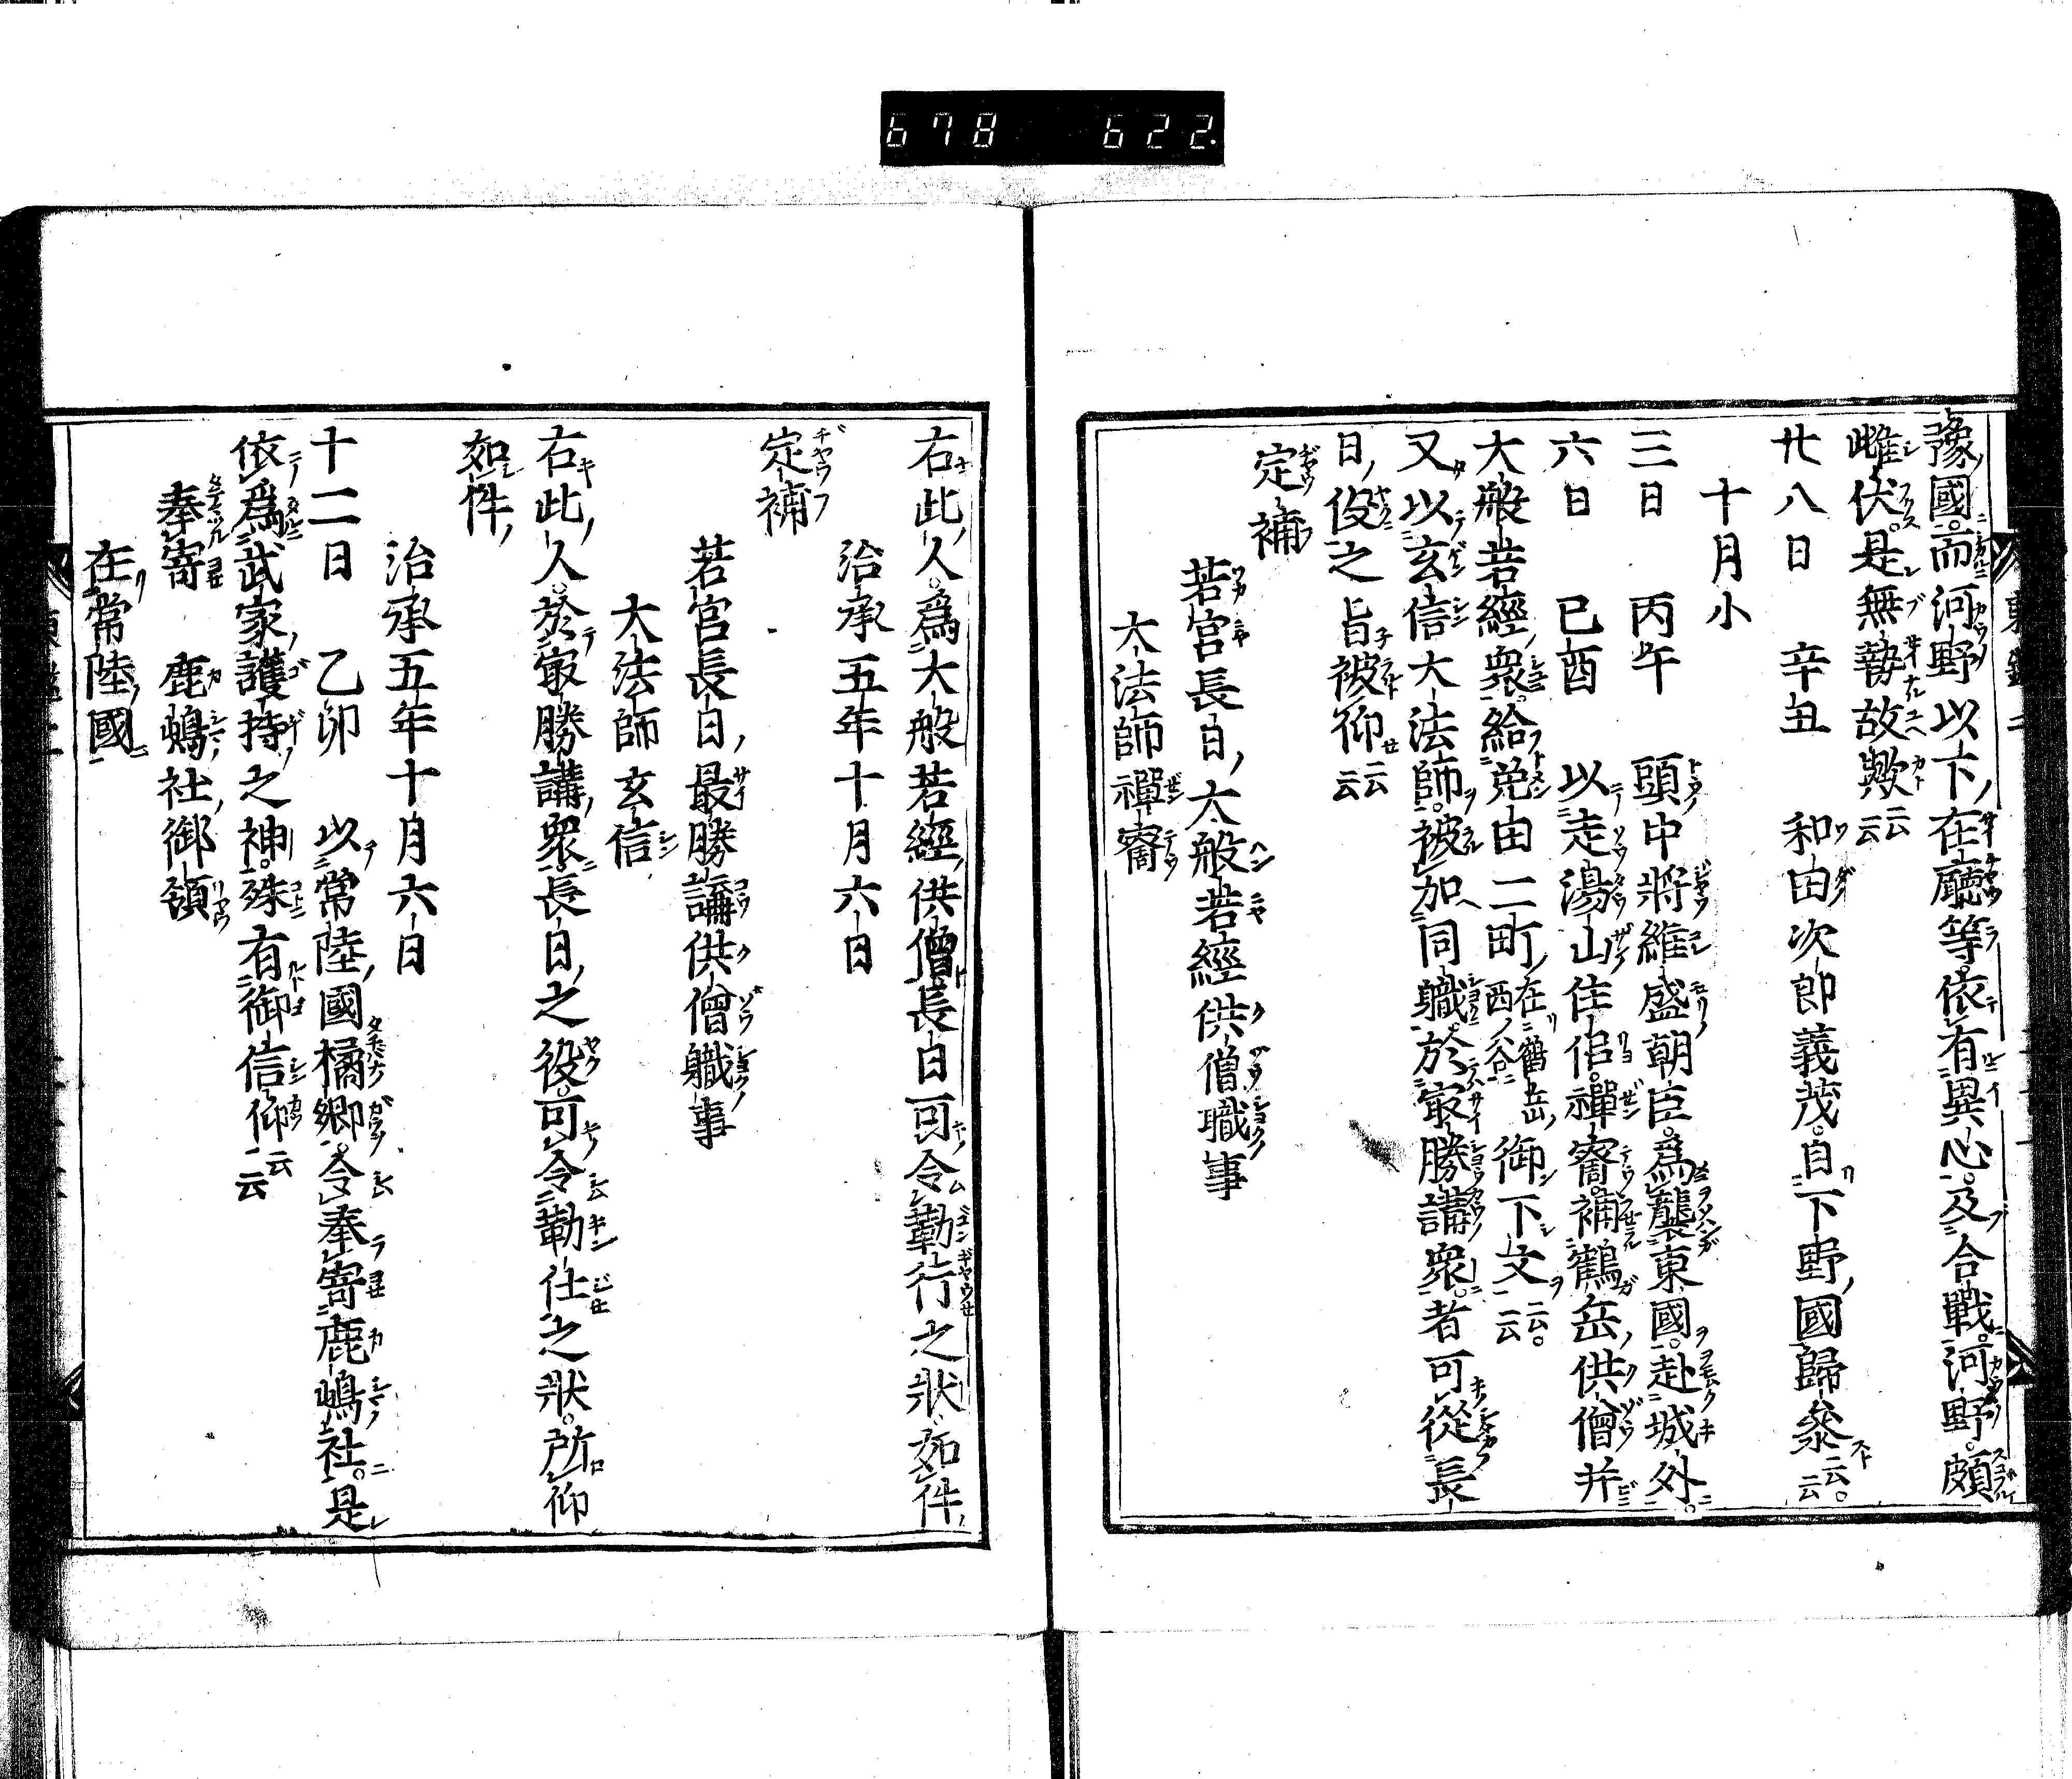 678 622.
豫國而河野以下在廳等依有異心及合戰河野頗
雌伏是無勢故歟云云
廿八日 辛丑 和田次郎義茂自下野國歸參云云
十月小
三日 丙午 頭中將維盛朝臣爲襲東國赴城外
六日 己酉 以走湯山住侶禪睿補鶴岳供僧并
大般若經衆給免田二町在鶴岳西谷御下文云云
又以玄信大法師被加同職於最勝講衆者可從長
日役之旨被仰云云
定補
若宮長日大般若經供僧職事
大法師禪睿
右此人爲大般若經供僧長日可令勤行之狀如件
治承五年十月六日
定補
若宮長日最勝講供僧職事
大法師玄信
右此人於最勝講衆長日之役可令勤仕之狀所仰
如件
治承五年十月六日
十二日 乙卯 以常陸國橘郷令奉寄鹿嶋社是
依爲武家護持之神殊有御信仰云云
奉寄 鹿嶋社御領
在常陸國